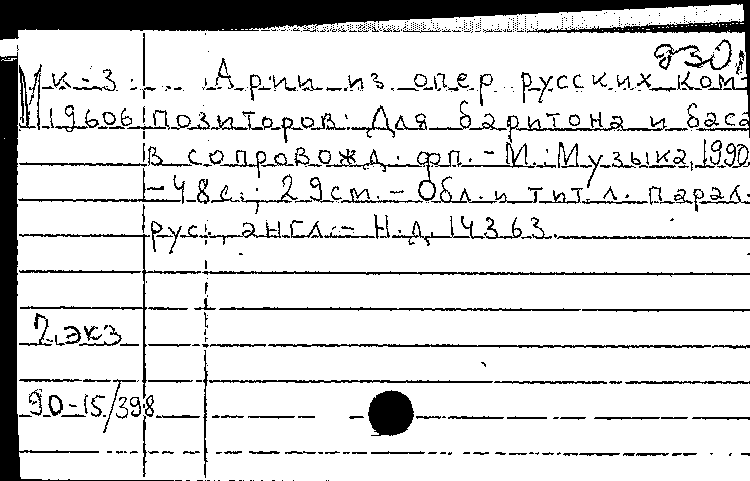 930
М к-3 Арии из опер русских ком-
19606 позиторов: Для баритона и баса
в сопровожд. фп. - М.: Музыка, 1990.
-48с.; 29см. - Обл. и тит. л. парал.
рус., англ. - Н.д. 14363.
2 экз
90-15/398